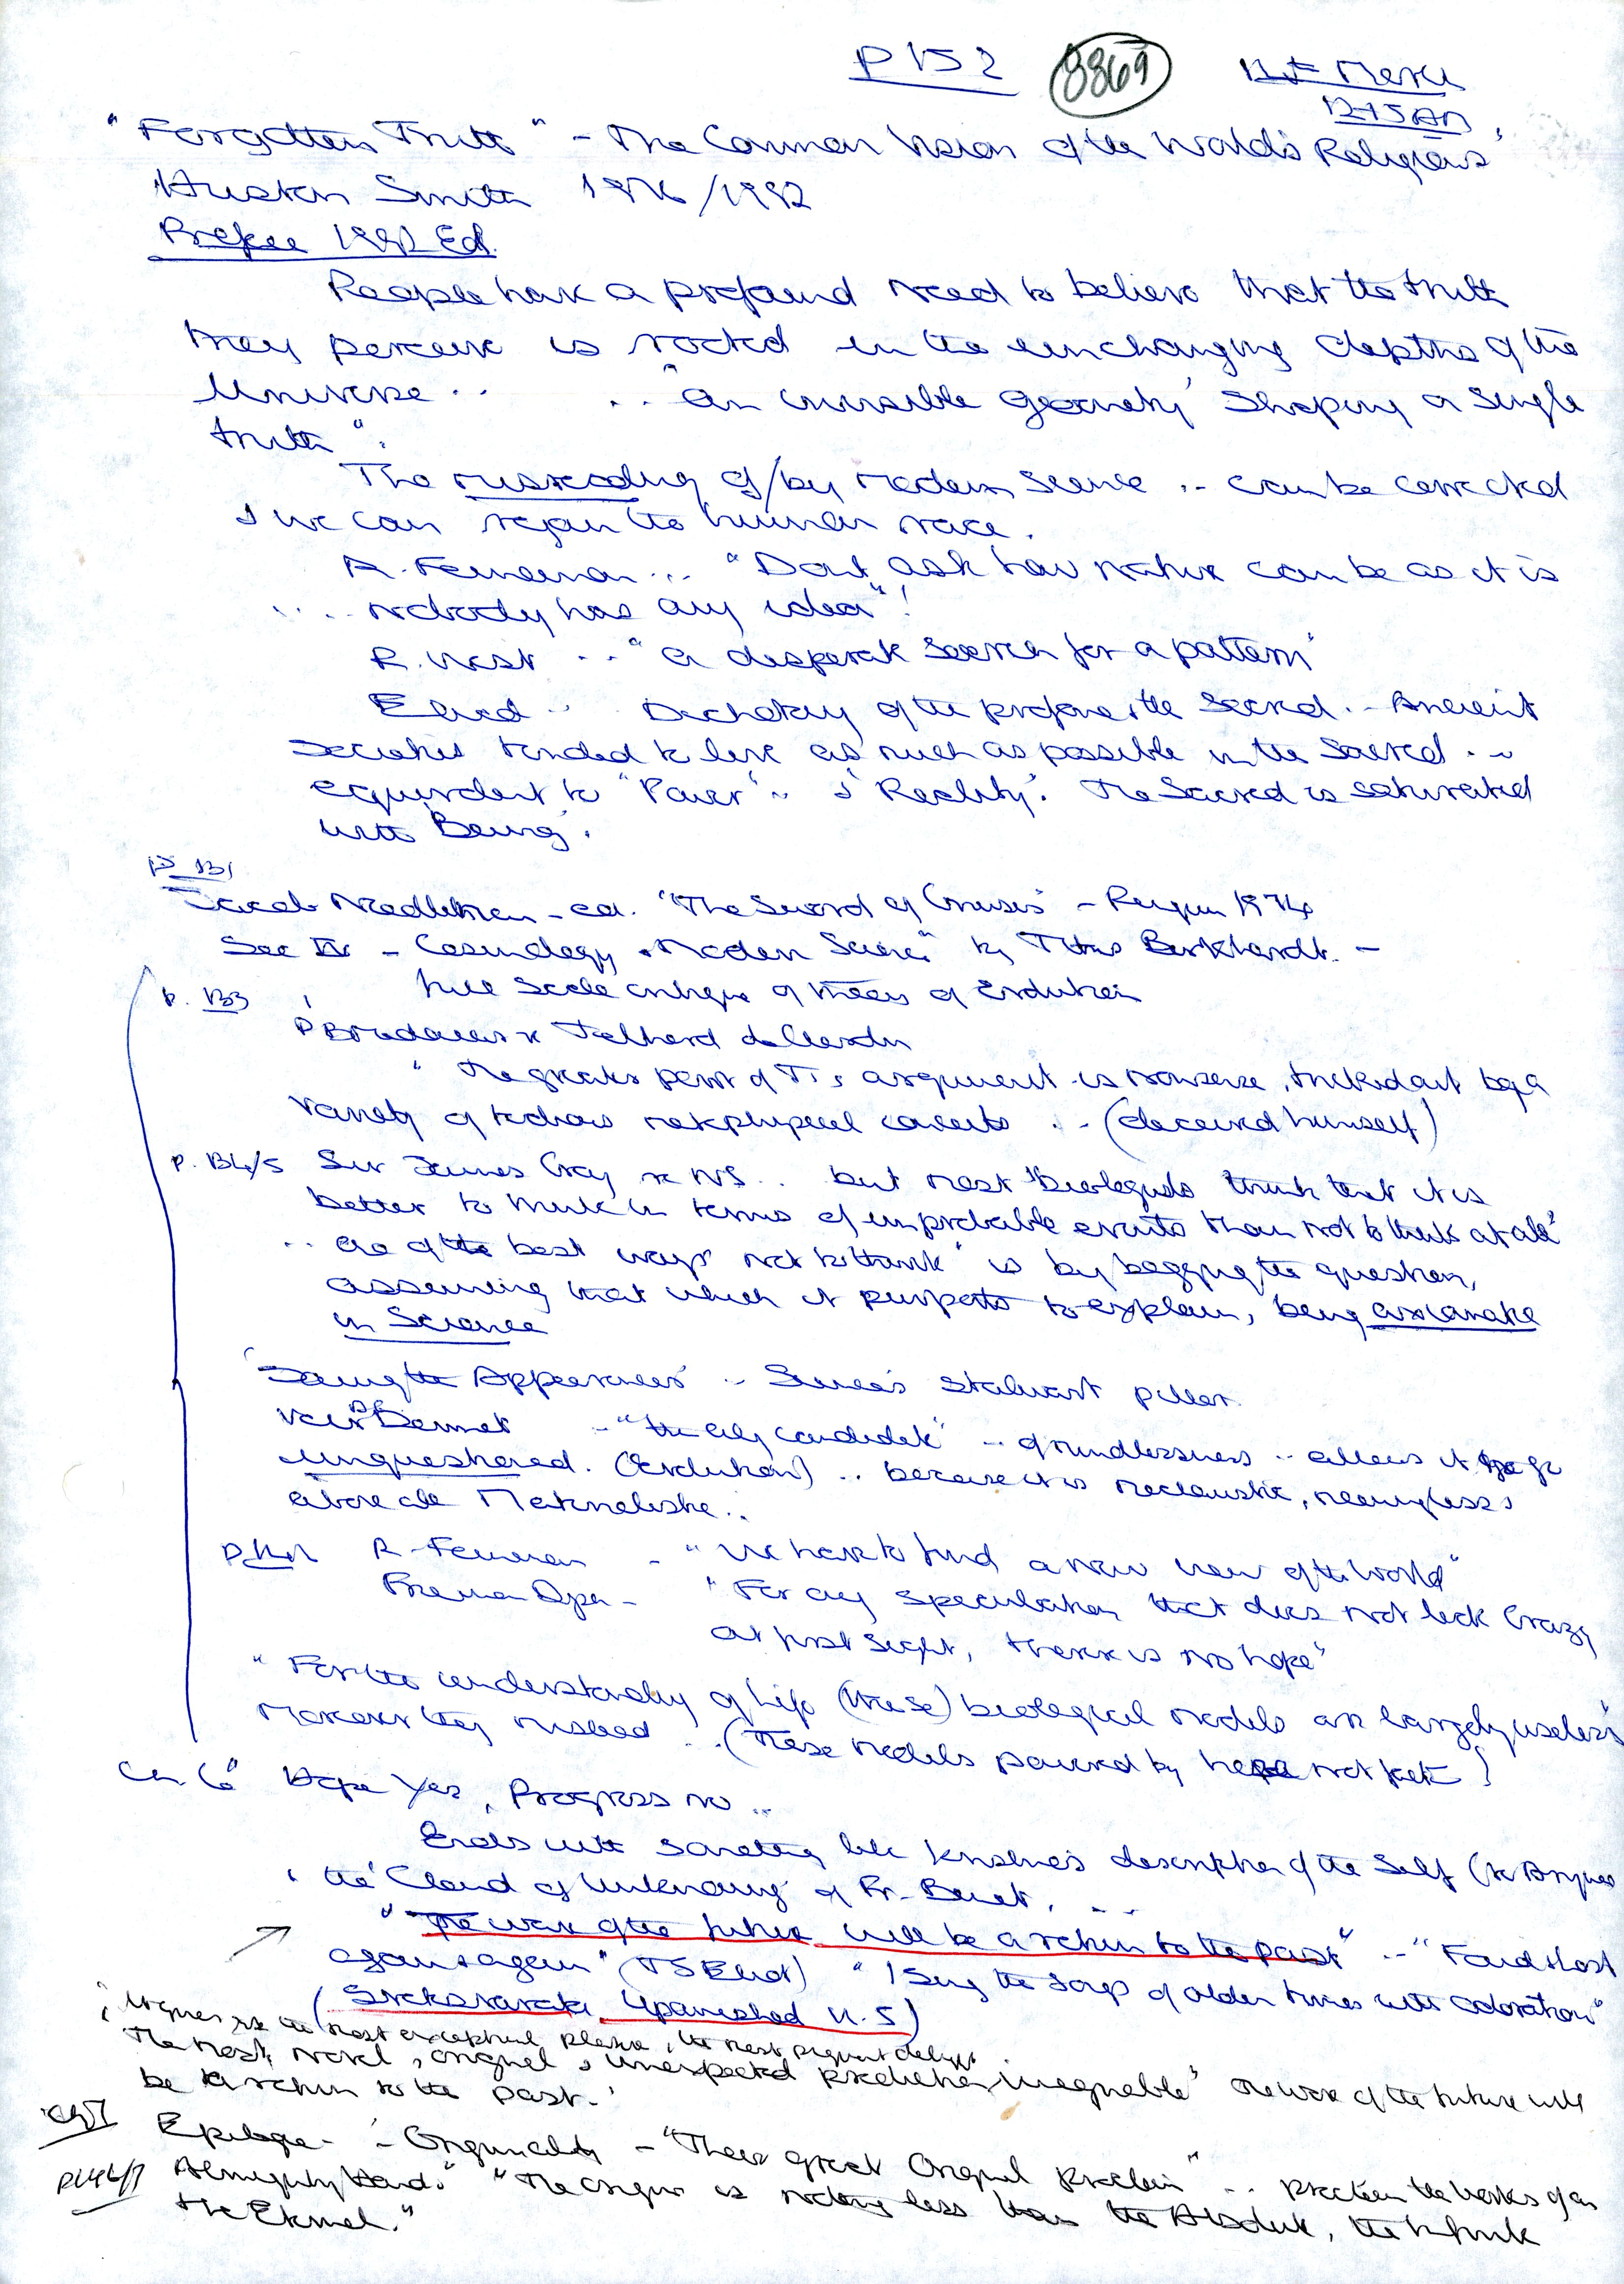 P 152 8869 12th March
12-15AM
"Forgotten Truth" - The Common Vision of the World's Religions'
Huston Smith 1976/1992
Preface 1992 Ed.
People have a profound need to believe that the truth
they perceive is rooted in the unchanging depths of the
Universe .. .. "an invisible geometry' shaping a single
truth".
The misreading of/by modern Science .. can be corrected
& we can rejoin the human race.
R. Feynman ... "Dont ask how nature can be as it is
.... nobody has any idea"!
R. West .. "a desperate search for a pattern'
Eliad .. Dichotomy of the profane & the Sacred .. Ancient
Societies tended to live as much as possible in the Sacred ...
equivalent to "Power" .. & 'Reality'. The Sacred is saturated
with 'Being'.
P 131
Jacob Needleman - ed. "The Sword of Gnosis" - Penguin 1974
Sec IV - Cosmology & Modern Science" by Titus Burkhardt. -
full scale critique of theory of Evolution
P. 133
P Bradawer x Teilhard de Chardin
"The greater part of T's argument is nonsense, tricked out by a
variety of tedious metaphysical conceits ... (deceived himself)
P. 134/5 Sir James Gray x NS .. but most biologists think that it is
better to think in terms of improbable events than not to think at all'
.. one of the best ways 'not to think' is by begging the question,
assuming that which it purports to explain, being
in Science
'Saving the Appearances' .. Science's stalwart pillar.
Dennet - "the only candidate" .. groundlessness .. allows it to go
unquestioned. (Evolution) .. because it is mechanistic, meaningless &
above all Materialistic..
R. Feynman - "We have to find a new view of the World"
Freeman Dyson - "For any speculation that does not look Crazy
at first sight, there is no hope"
"For the understanding of life (these) biological models are largely useless
Moreover they mislead .. (These models powered by hope not fact!)
Ch. 6 " Hope Yes, Progress no ..
Ends with something like Krishna's description of the Self (to Arjuna
& the 'Cloud of Unknowing' of Fr. Benet. ...
"The wave of the future will be a return to the past" .. "Found & lost
again & again" (TS Eliot) "I Sing the songs of olden times with adoration"
(Svetasvarata Upanishad II. 5)
The most novel, original & unexpected prediction imaginable' The wave of the future will
be a return to the past.'
Epilogue - - Originality - "Their great Original proclaim" .. proclaim the works of an
Almighty Hand." "The origin is nothing less than the Absolute, the Infinite
the Eternal."